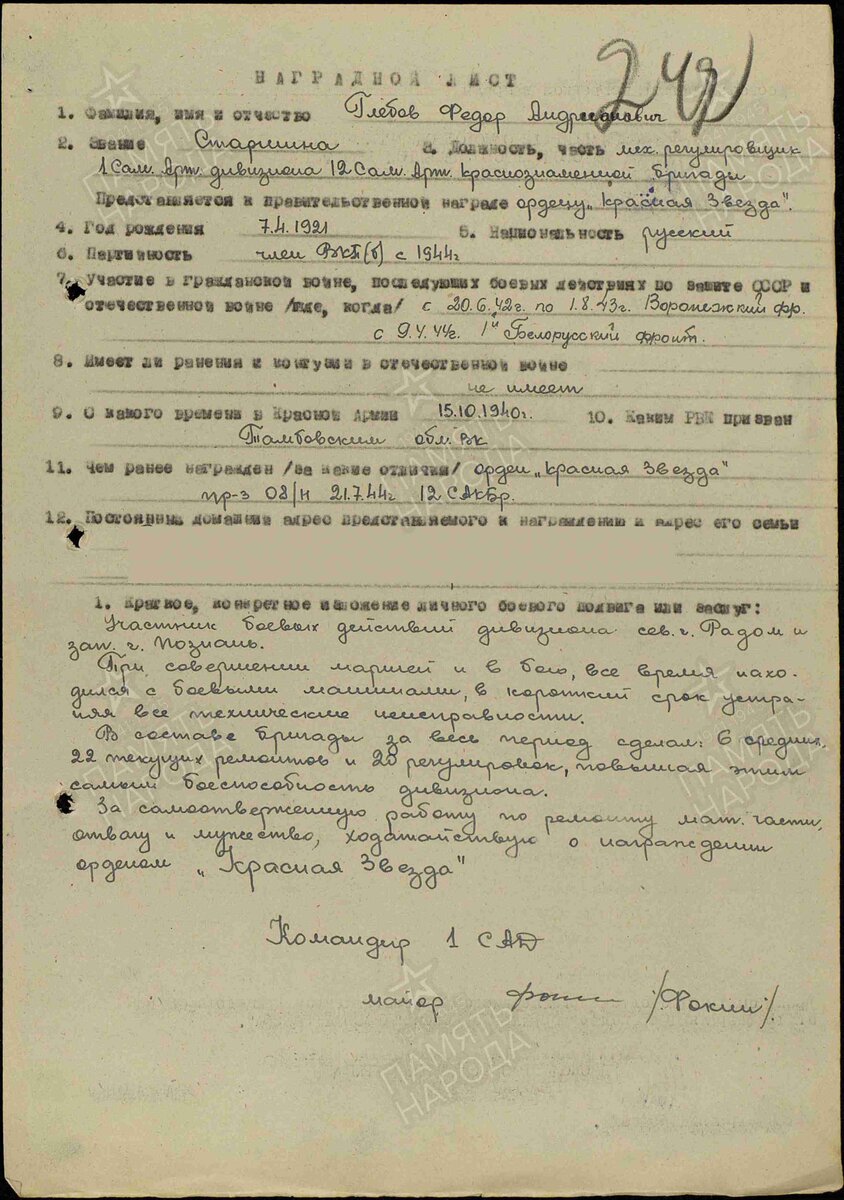 249
НАГРАДНОЙ ЛИСТ
1. Фамилия, имя и отчество Глебов Федор Андреянович
2. Звание Старшина 3. Должность, часть мех. регулировщик
1 Сам. Арт. дивизиона 12 Сам. Арт. краснознаменной бригады
Представляется к правительственной награде ордену „Красная Звезда".
4. Год рождения 7.4.1921 5. Национальность русский
6. Партийность член ВКП(б) с 1944г
7. Участие в гражданской войне, последующих боевых действиях по защите СССР и
отечественной войне /где, когда/ с 20.6.42г. по 1.8.43г. Воронежский фр.
с 9.4.44г. 1й Белорусский фронт.
8. Имеет ли ранения и контузии в отечественной войне
не имеет
9. С какого времени в Красной Армии 15.10.1940г. 10. Каким РВК призван
Тамбовским обл. вк
11. Чем ранее награжден /за какие отличия/ орден „Красная Звезда"
пр-з 08/н 21.7.44г 12 САКБр.
12. Постоянный домашний адрес представляемого к награждению и адрес его семьи
1. Краткое, конкретное изложение личного боевого подвига или заслуг:
Участник боевых действий дивизиона сев. г. Радом и
зап. г. Познань.
При совершении маршей и в бою, все время нахо-
дился с боевыми машинами, в короткий срок устра-
няя все технические неисправности.
В составе бригады за весь период сделал: 6 средних,
22 текущих ремонтов и 20 регулировок, повышая этим
самым боеспособность дивизиона.
За самоотверженную работу по ремонту мат. части,
отвагу и мужество, ходатайствую о награждении
орденом „Красная Звезда"
Командир 1 САД
майор /Фокин/.
ПАМЯТЬ
НАРОДА